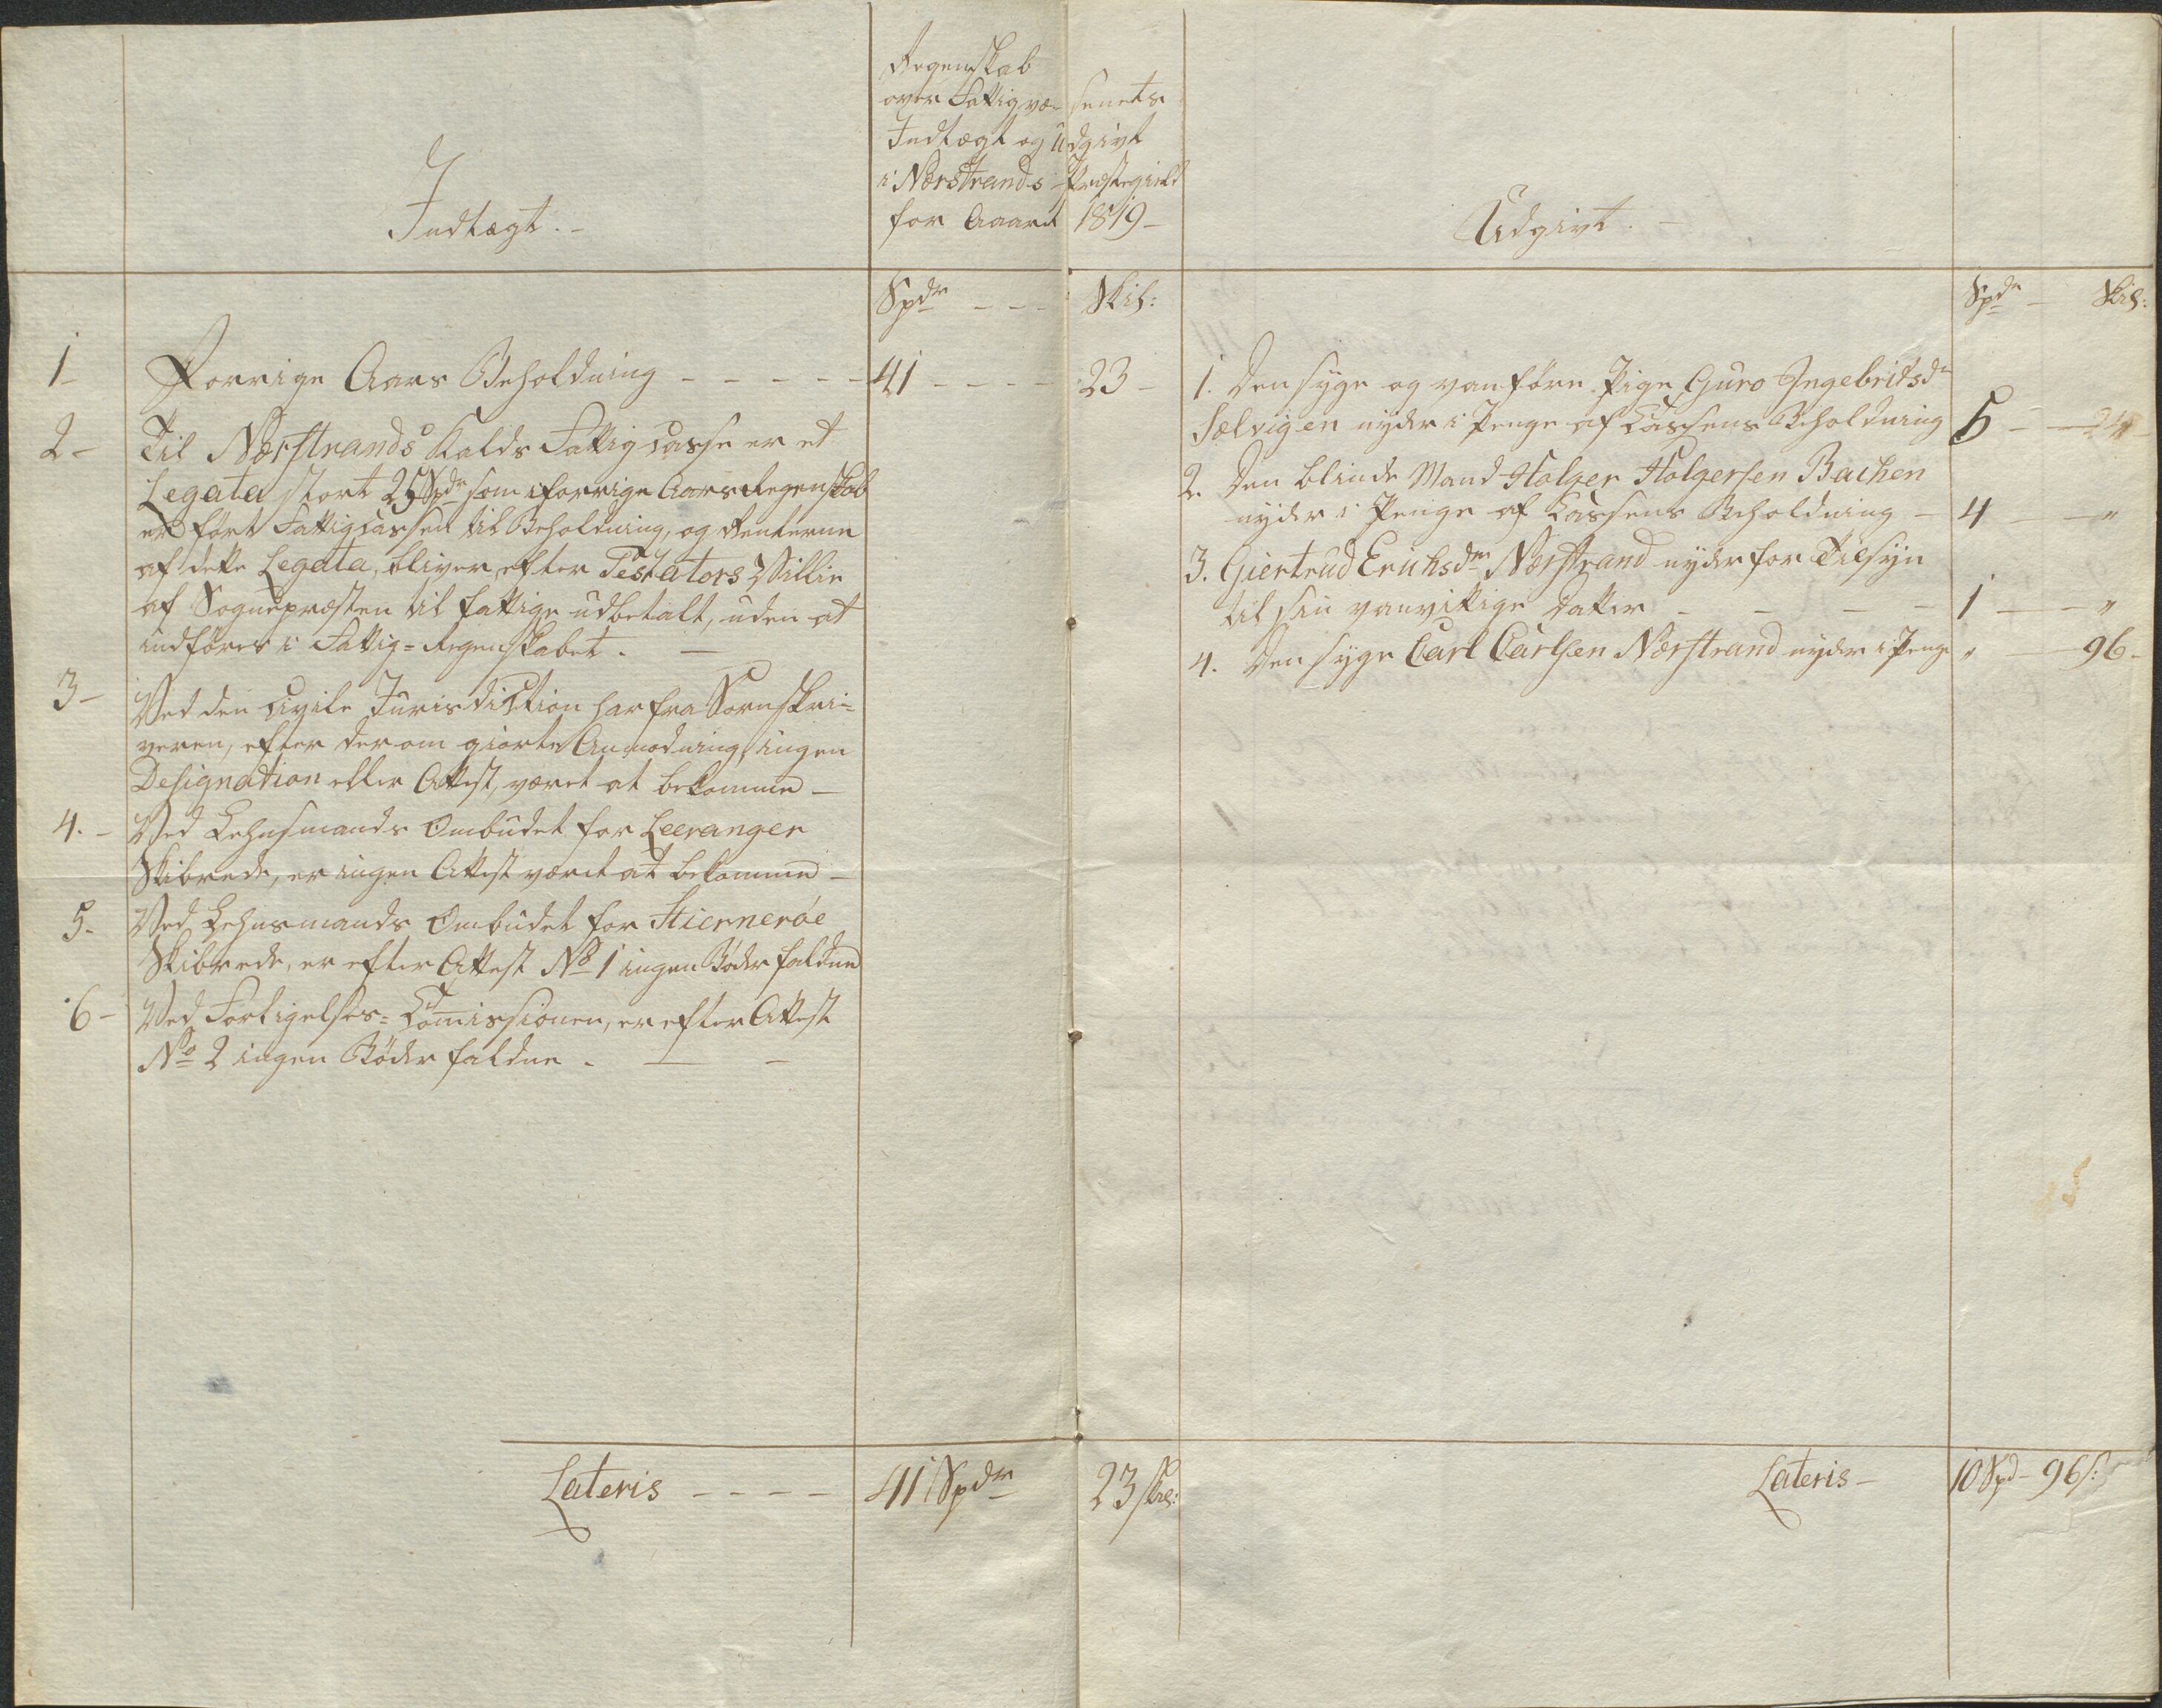 Regenskab
over Fattigvæ- senets
Indtægt og Udgivt
i Nærstrands Præstegield
for Aaret 1819 -
Indtægt. -
Spdr - - - Skil:
1 - Forrige Aars Beholdning - - - - - 41 - - - - 23 -
2 - Til Nærstrands Kalds Fattigcasse er et
Legata stort 25 Spdr som i forrige Aars Regenskab
er ført Fattigcassen til Beholdning, og Renterne
af dette Legata, bliver, efter Testators Villie
af Sognepræsten til fattige udbetalt, uden at
indføres i Fattig=Regenskabet. -
3 - Ved den civile Jurisdiction har fra Sorenskri=
veren, efter derom giorte Anmodning, ingen
Designation eller Attest, været at bekomme -
4. - Ved Lehnsmands Ombudet for Leeranger
Skibrede, er ingen Attest været at bekomme -
5. Ved Lehnsmands Ombudet for Hiernerøe
Skibrede, er efter Attest No 1 ingen Bøder faldne
6 - Ved Forligelses=Comissionen, er efter Attest
No 2 ingen Bøder faldne. - -
Lateris - - - - 41 Spdr 23 skil:
Udgivt. -
Spdr - Skil:
1. Den syge og vanføre Pige Guro Ingebritsdr
Sælvigen nyder i Penge af Cassens Beholdning 5 -
2. Den blinde Mand Holger Holgersen Bachen
nyder i Penge af Cassens Beholdning - 4 - - "
3. Giertrud Erichsdr Nærstrand nyder for Tilsyn
til sin vanvittige Datter - - - - 1 - - "
4. Den syge Carl Carlsen Nærstrand nyder i Penge " - 96 -
Lateris - 10 Spd - 96 s: